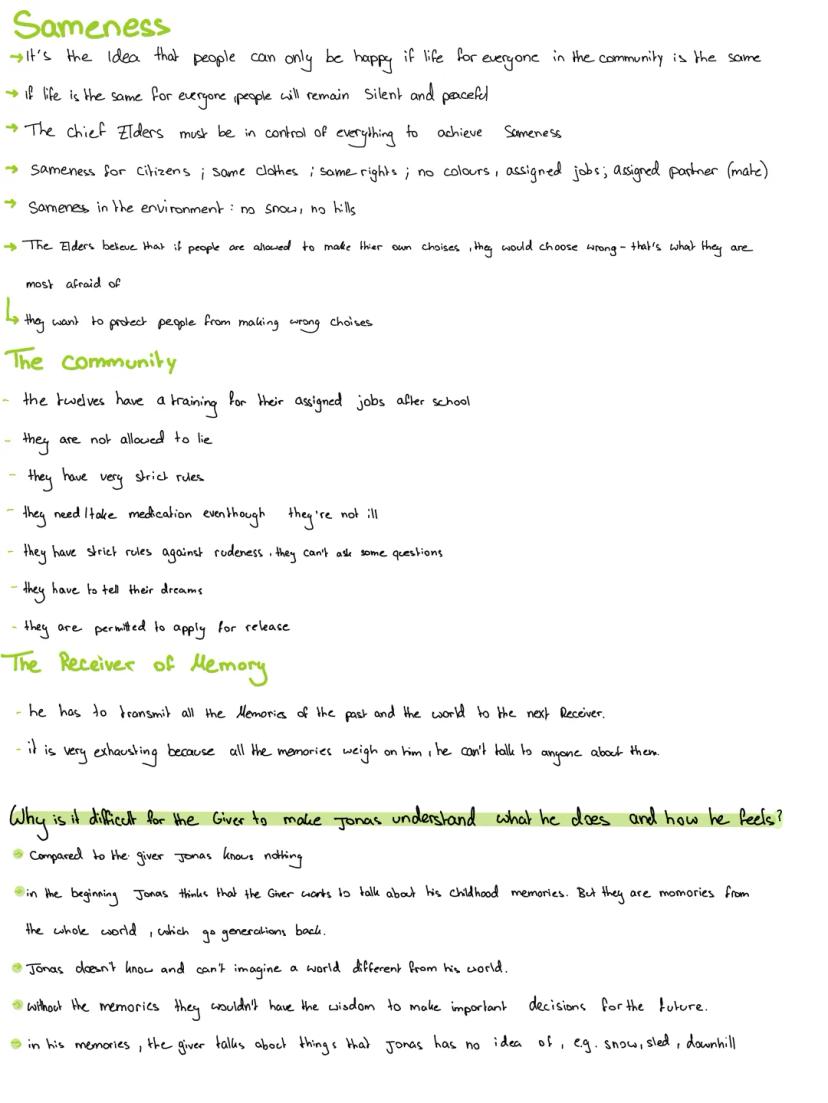 Sameness
→ It's the Idea that people can only be happy if life for everyone in the community is the same
→ if life is the same for everyone, people will remain silent and peaceful
→ The chief Elders must be in control of everything to achieve Sameness
→ Sameness for citizens ; same clothes ; some rights ; no colours, assigned jobs; assigned partner (mate)
→ Sameness in the environment : no snow, no hills
→ The Elders believe that if people are allowed to make thier own choises , they would choose wrong - that's what they are
most afraid of
↳ they want to protect people from making wrong choises
The community
- the twelves have a training for their assigned jobs after school
- they are not allowed to lie
- they have very strict rules
- they need/take medication eventhough they're not ill
- they have strict rules against rudeness, they can't ask some questions
- they have to tell their dreams
- they are permitted to apply for release
The Receiver of Memory
- he has to transmit all the Memories of the past and the world to the next Receiver.
- it is very exhausting because all the memories weigh on him, he can't talk to anyone about them.
Why is it difficult for the Giver to make Jonas understand what he does and how he feels?
• Compared to the giver Jonas knows nothing
• in the beginning Jonas thinks that the Giver wants to talk about his childhood memories. But they are momories from
the whole world , which go generations back.
• Jonas doesn't know and can't imagine a world different from his world.
• without the memories they wouldn't have the wisdom to make important decisions for the future.
• in his memories , the giver talks about things that Jonas has no idea of , e.g. snow, sled , downhill